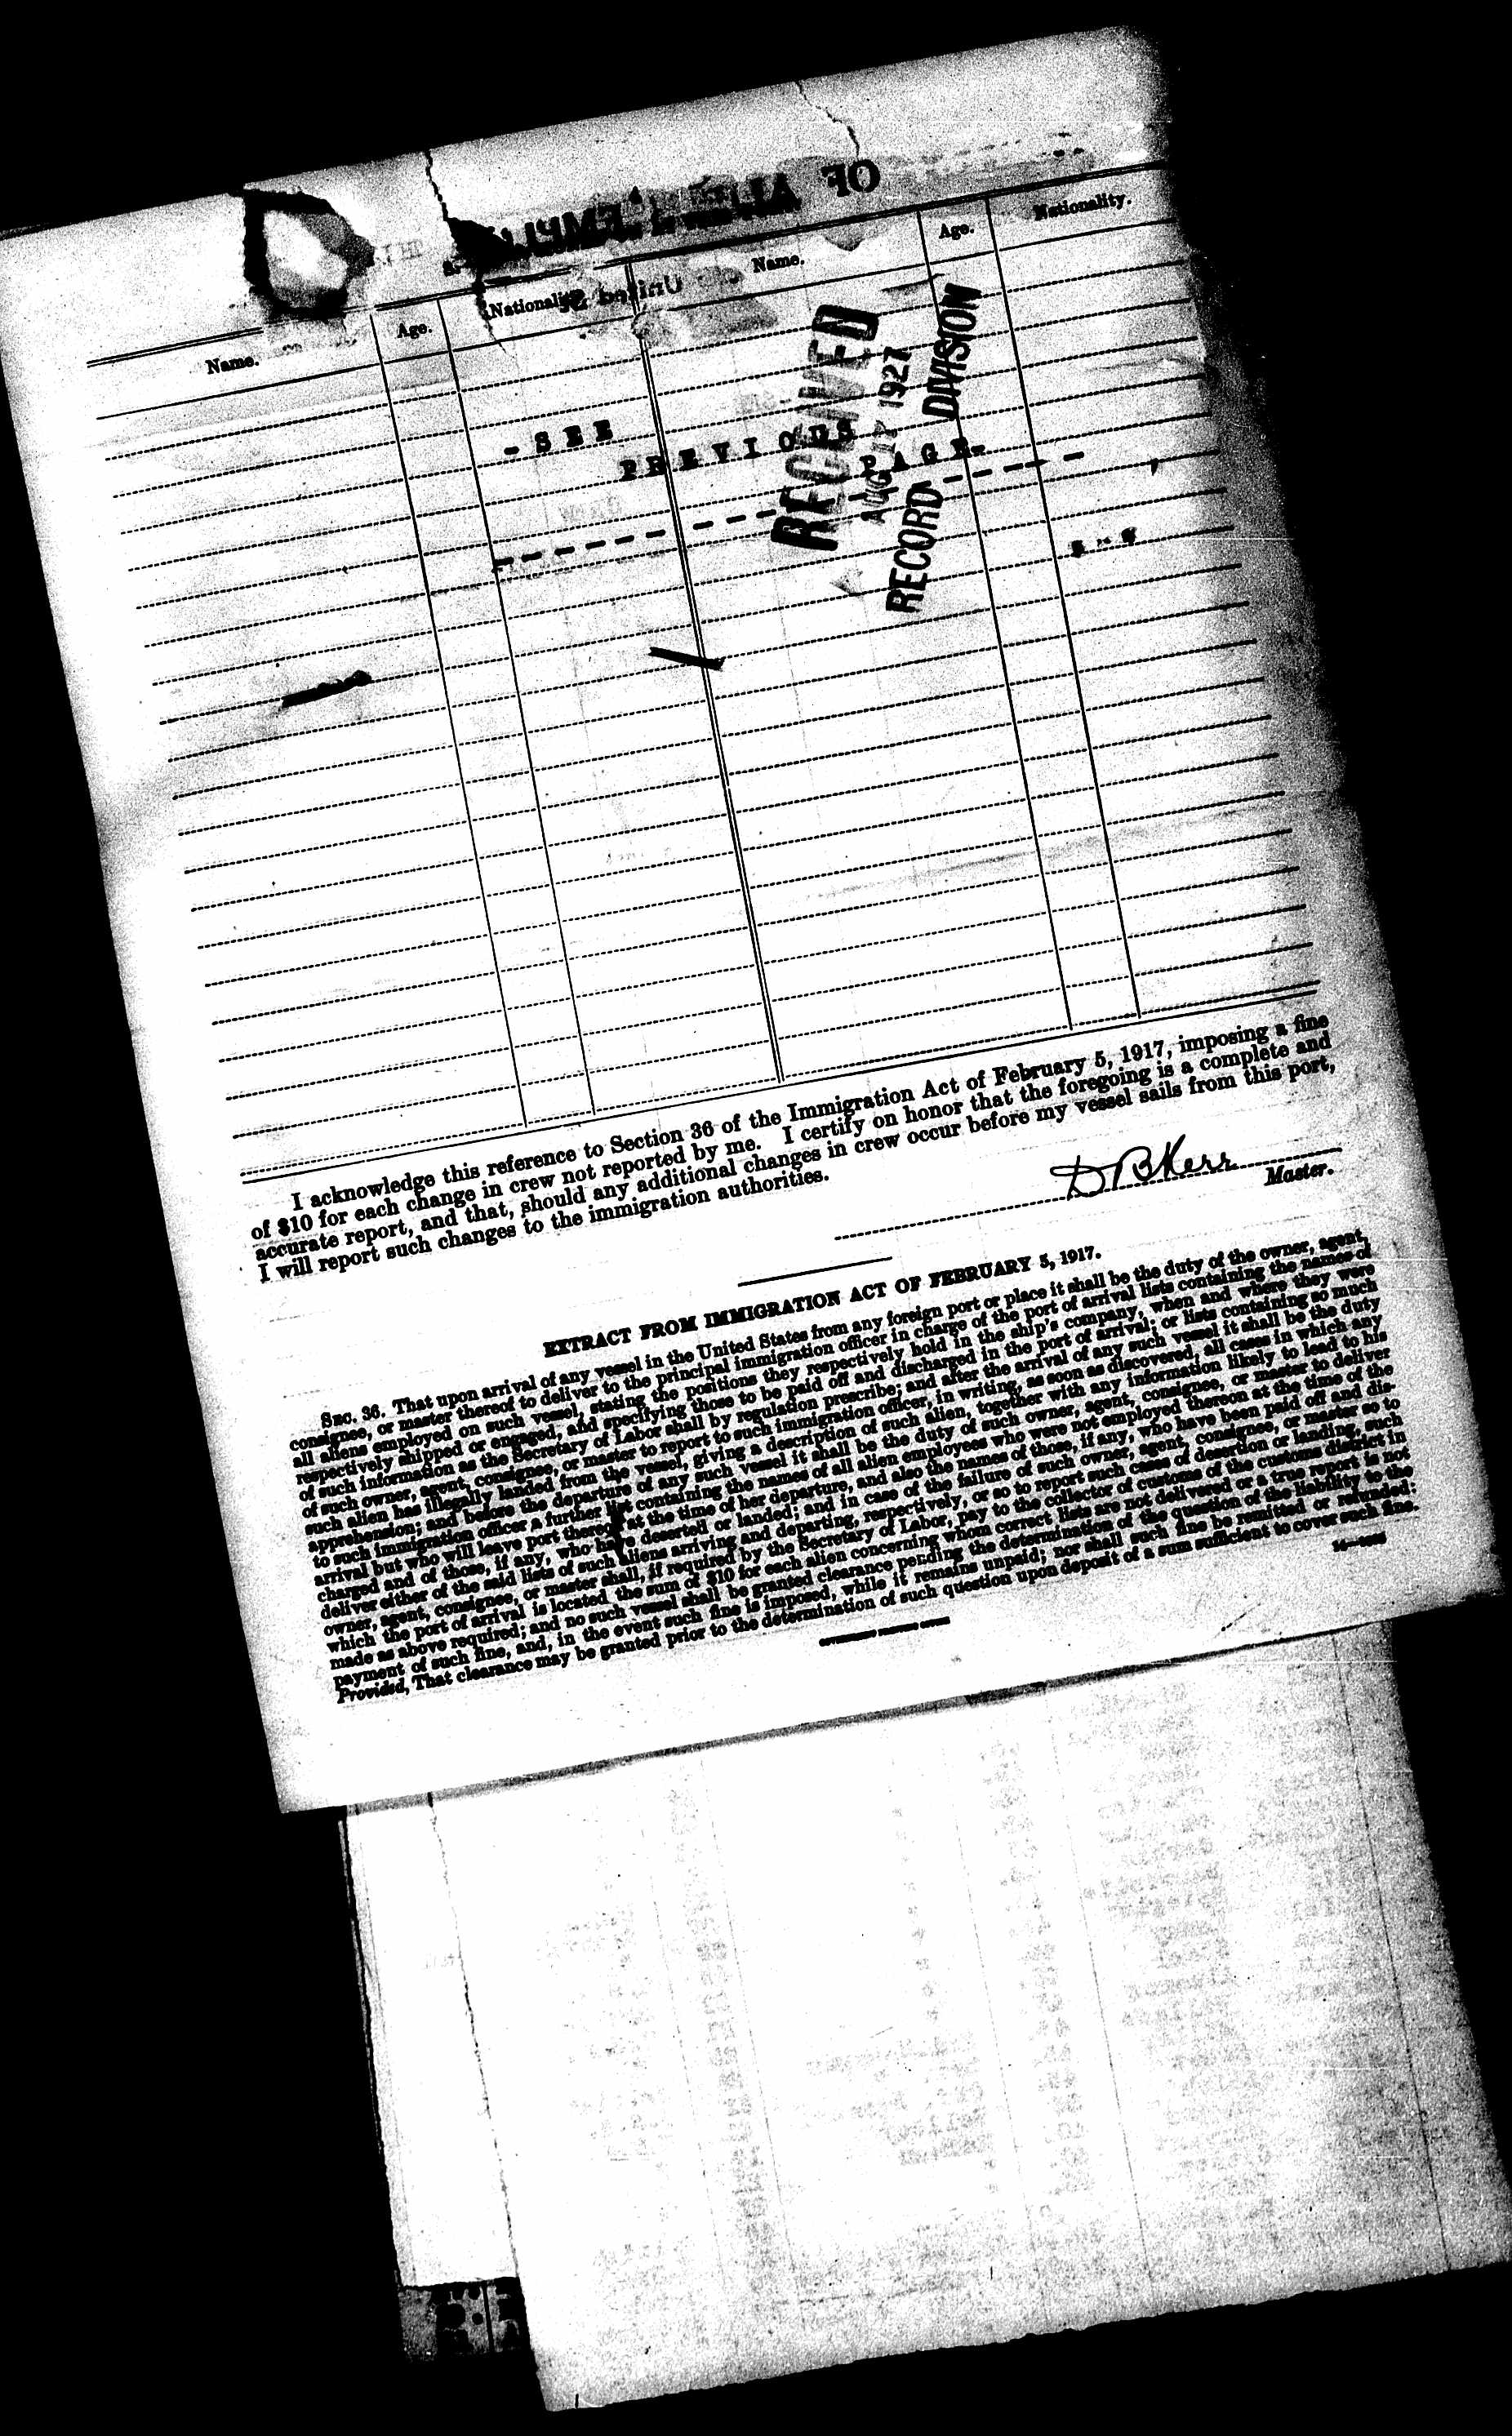 OF
Name.
Age.
Nationality.
Name.
Age.
Nationality.
RECEIVED
AUG 1927
RECORD DIVISION
- SEE
PREVIOUS
PAGE-
I acknowledge this reference to Section 36 of the Immigration Act of February 5, 1917, imposing a fine
of $10 for each change in crew not reported by me. I certify on honor that the foregoing is a complete and
accurate report, and that, should any additional changes in crew occur before my vessel sails from this port,
I will report such changes to the immigration authorities.
D B Kerr
Master.
EXTRACT FROM IMMIGRATION ACT OF FEBRUARY 5, 1917.
SEC. 36. That upon arrival of any vessel in the United States from any foreign port or place it shall be the duty of the owner, agent,
consignee, or master thereof to deliver to the principal immigration officer in charge of the port of arrival lists containing the names of
all aliens employed on such vessel, stating the positions they respectively hold in the ship's company, when and where they were
respectively shipped or engaged, and specifying those to be paid off and discharged in the port of arrival; or lists containing so much
of such information as the Secretary of Labor shall by regulation prescribe; and after the arrival of any such vessel it shall be the duty
of such owner, agent, consignee, or master to report to such immigration officer, in writing, as soon as discovered, all cases in which any
such alien has illegally landed from the vessel, giving a description of such alien, together with any information likely to lead to his
apprehension; and before the departure of any such vessel it shall be the duty of such owner, agent, consignee, or master to deliver
to such immigration officer a further list containing the names of all alien employees who were not employed thereon at the time of the
arrival but who will leave port thereon at the time of her departure, and also the names of those, if any, who have been paid off and dis-
charged and of those, if any, who have deserted or landed; and in case of the failure of such owner, agent, consignee, or master so to
deliver either of the said lists of such aliens arriving and departing, respectively, or so to report such cases of desertion or landing, such
owner, agent, consignee, or master shall, if required by the Secretary of Labor, pay to the collector of customs of the customs district in
which the port of arrival is located the sum of $10 for each alien concerning whom correct lists are not delivered or a true report is not
made as above required; and no such vessel shall be granted clearance pending the determination of the question of the liability to the
payment of such fine, and, in the event such fine is imposed, while it remains unpaid; nor shall such fine be remitted or refunded:
Provided, That clearance may be granted prior to the determination of such question upon deposit of a sum sufficient to cover such fine.
GOVERNMENT PRINTING OFFICE